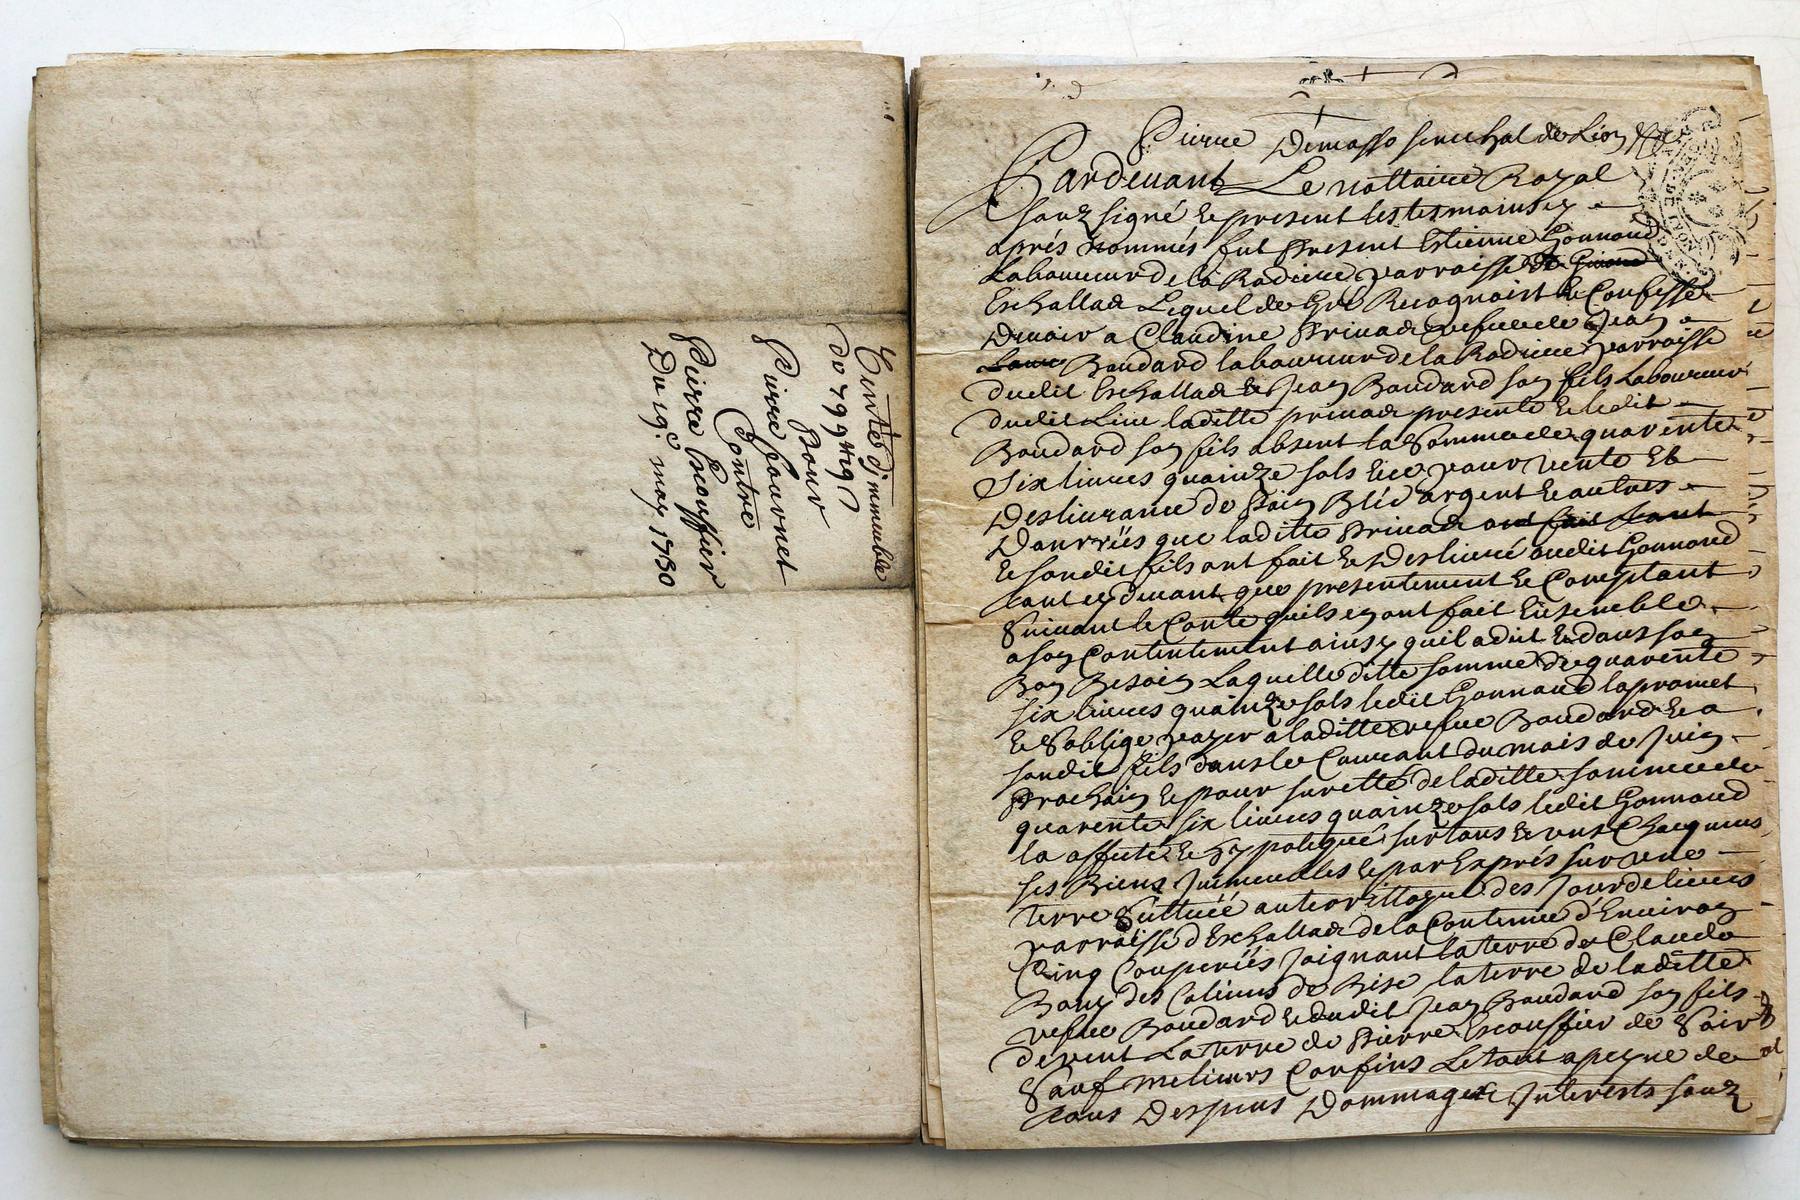 Vente d'jmmeuble
de 79# 4s 9d
Pour
Pierre fournet
Contre
Pierre Escoffier
Du 19e. may 1730
Pierre Demasso senechal de Lion
Pardeuant Le nottaire Royal
souz signé & present les tesmoins cy
aprés nommés fut Present Estienne Gonnaud
Laboureur de la Radiere parroisse de
Eschallas Lequel de Gré Recognoist & Confesse
Deuoir a Claudine Priuas vefue de Jean
Baudard laboureur de la Radiere parroisse
dudit Eschallas & Jean Baudard son fils Laboureur
dudit Lieu laditte priuas presente & ledit
Baudard son fils absent la Somme de quarente
Six liures quainze sols & ce pour vente Et
Desliurance de Foin Bléd argent & autres
Danrrées que laditte Priuas ont fait tant
& sondit fils ont fait & Desliuré audit Gonnaud
tant cy deuant que presentement & Comptant
Suiuant le Conte quils en ont fait Ensemble
a son Contentement ainsy quil a dit & dans son
Bon Besoin Laquelle ditte somme de quarente
six liures quainze sols ledit Gonnaud la promet
& S'oblige payer a laditte vefue Baudard & a
sondit fils dans le Courant du mois de Juin
Prochain & pour suretté de laditte somme de
quarente six liures quainze sols ledit Gonnaud
la affecté & hypotequé sur tous & vns Chacquns
ses Biens Jmmeubles & par Exprés sur vne
terre Scittuée au territtoyre des Jourdelieres
parroisse d'Eschallas de la Contenue d'Enuiron
Cinq Couperiés Joignant la terre de Claude
Bony des Colieres de Bise la terre de laditte
vefue Baudard & dudit Jean Baudard son fils
de vent La terre de Pierre Escouffier de Soir
Sauf meliurs Confins Le tout a peyne de
tous Despens Dommages Interests souz